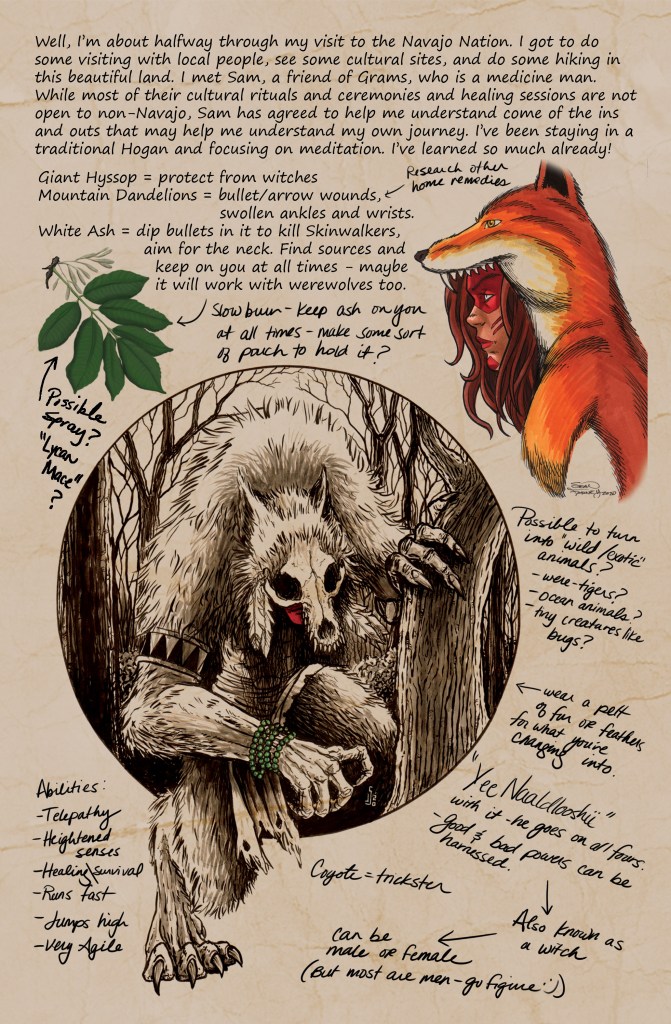 Well, I'm about halfway through my visit to the Navajo Nation. I got to do
some visiting with local people, see some cultural sites, and do some hiking in
this beautiful land. I met Sam, a friend of Grams, who is a medicine man.
While most of their cultural rituals and ceremonies and healing sessions are not
open to non-Navajo, Sam has agreed to help me understand come of the ins
and outs that may help me understand my own journey. I've been staying in a
traditional Hogan and focusing on meditation. I've learned so much already!
Giant Hyssop = protect from witches
Mountain Dandelions = bullet/arrow wounds,
swollen ankles and wrists.
Research other
home remedies
White Ash = dip bullets in it to kill Skinwalkers,
aim for the neck. Find sources and
keep on you at all times - maybe
it will work with werewolves too.
Slow burn - keep ash on you
at all times - make some sort
of pouch to hold it?
Possible
spray?
"Lycan
Mace"
?
2020
Possible to turn
into "wild/exotic"
animals?
- were-tigers?
- ocean animals?
- tiny creatures like
bugs?
wear a pelt
of fur or feathers
for what you're
changing into.
"Yee Naaldlooshii"
with it - he goes on all fours.
- good & bad powers can be
harnessed.
Also known as
a witch
can be
male or female
(But most are men - go figure :))
Coyote = trickster
Abilities:
- Telepathy
- Heightened
senses
- Healing/survival
- Runs fast
- Jumps high
- Very Agile